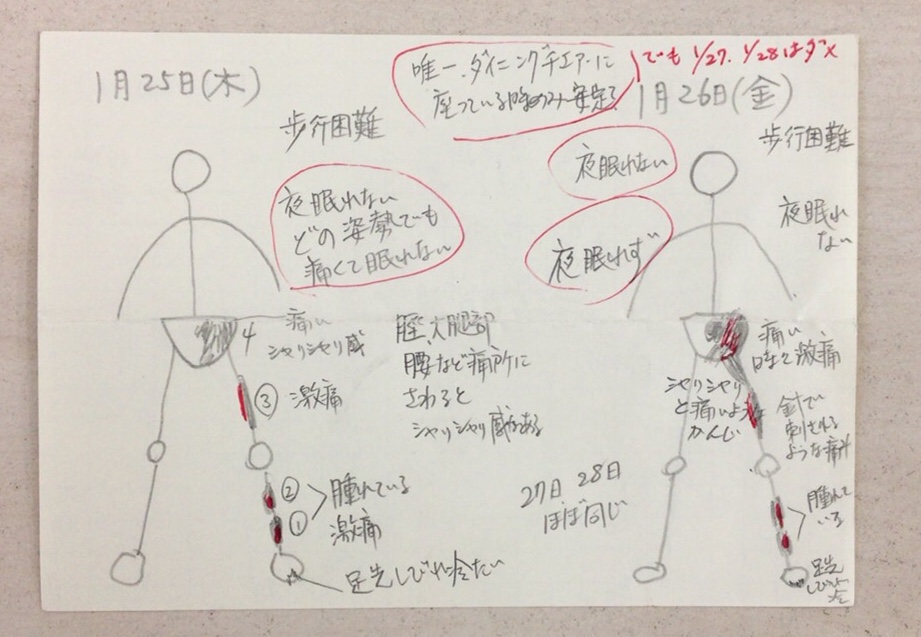 1月25日(木)
歩行困難
唯一、ダイニングチェアーに
座っている時のみ安定。
でも 1/27. 1/28はダメ
1月26日(金)
歩行困難
夜眠れない
どの姿勢でも
痛くて眠れない
夜眠れない
夜眠れず
夜眠れ
ない
4
痛い
シャリシャリ感
③ 激痛
② 腫れている
① 激痛
足先しびれ冷たい
脛、大腿部
腰など痛所に
さわると
シャリシャリ感がある
27日 28日
ほぼ同じ
痛い
時々激痛
シャリシャリ
と痛いような
かんじ
針で
刺される
ような痛み
腫れて
いる
足先